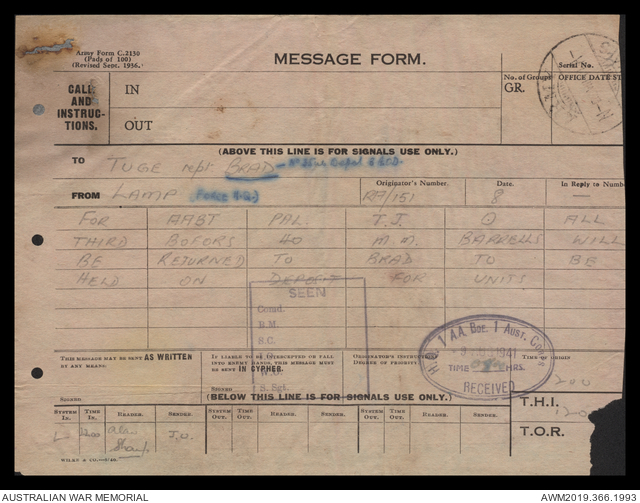 Army Form C.2130
(Pads of 100)
(Revised Sept. 1936.)
MESSAGE FORM.
Serial No.
CALL AND INSTRUC-TIONS.
IN
OUT
No. of Groups
GR.
OFFICE DATE ST
(ABOVE THIS LINE IS FOR SIGNALS USE ONLY.)
TO TUGE rept BRAD
FROM LAMP (Force H.Q.)
Originator's Number.
RA/151
Date.
8
In Reply to Numbe
FOR AABT PAL. T.J. O ALL
THIRD BOFORS 40 M.M. BARRELLS WILL
BE RETURNED TO BRAD TO BE
HELD ON DEPOSIT FOR UNITS
SEEN
Comd.
B.M.
S.C.
S. Sgt.
H.Q. 1 AA. BDE. 1 AUST. CORPS
1941
TIME HRS.
RECEIVED
THIS MESSAGE MAY BE SENT AS WRITTEN
BY ANY MEANS.
SIGNED
IF LIABLE TO BE INTERCEPTED OR FALL
INTO ENEMY HANDS, THIS MESSAGE MUST
BE SENT IN CIPHER.
SIGNED
ORIGINATOR'S INSTRUCTIONS
DEGREE OF PRIORITY.
TIME OF ORIGIN
1200
(BELOW THIS LINE IS FOR SIGNALS USE ONLY.)
T.H.I.
T.O.R.
SYSTEM IN. TIME IN. READER. SENDER. SYSTEM OUT. TIME OUT. READER. SENDER. SYSTEM OUT. TIME OUT. READER. SENDER.
L 1200
AUSTRALIAN WAR MEMORIAL
AWM2019.366.1993